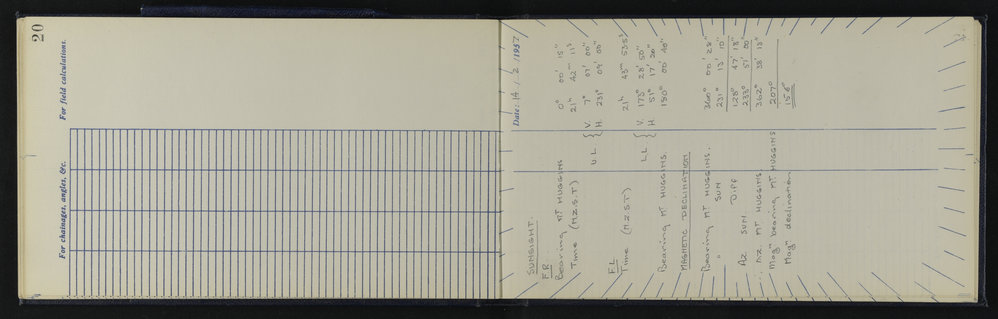 20
For chainages, angles, &c.
For field calculations.
Date: 14 / 2 / 1957
SUNSIGHT.
F.R.
Bearing MT HUGGINS 0° 00' 15"
Time (N.Z.S.T) 21h 42m 11s
U L { V. 7° 07' 00"
H. 231° 09' 00"
F.L
Time (N Z S T) 21h 43m 53.5s
L L { V. 173° 28' 50"
H. 51° 17' 20"
Bearing MT HUGGINS. 180° 00' 40"
MAGNETIC DECLINATION
Bearing MT HUGGINS. 360° 00' 28"
" SUN 231° 13' 10"
Diff 128° 47' 18"
Az SUN 233° 51' 00"
∴ Az. MT HUGGINS 362° 38' 18"
Magn bearing MT HUGGINS 207°
Magn declination.